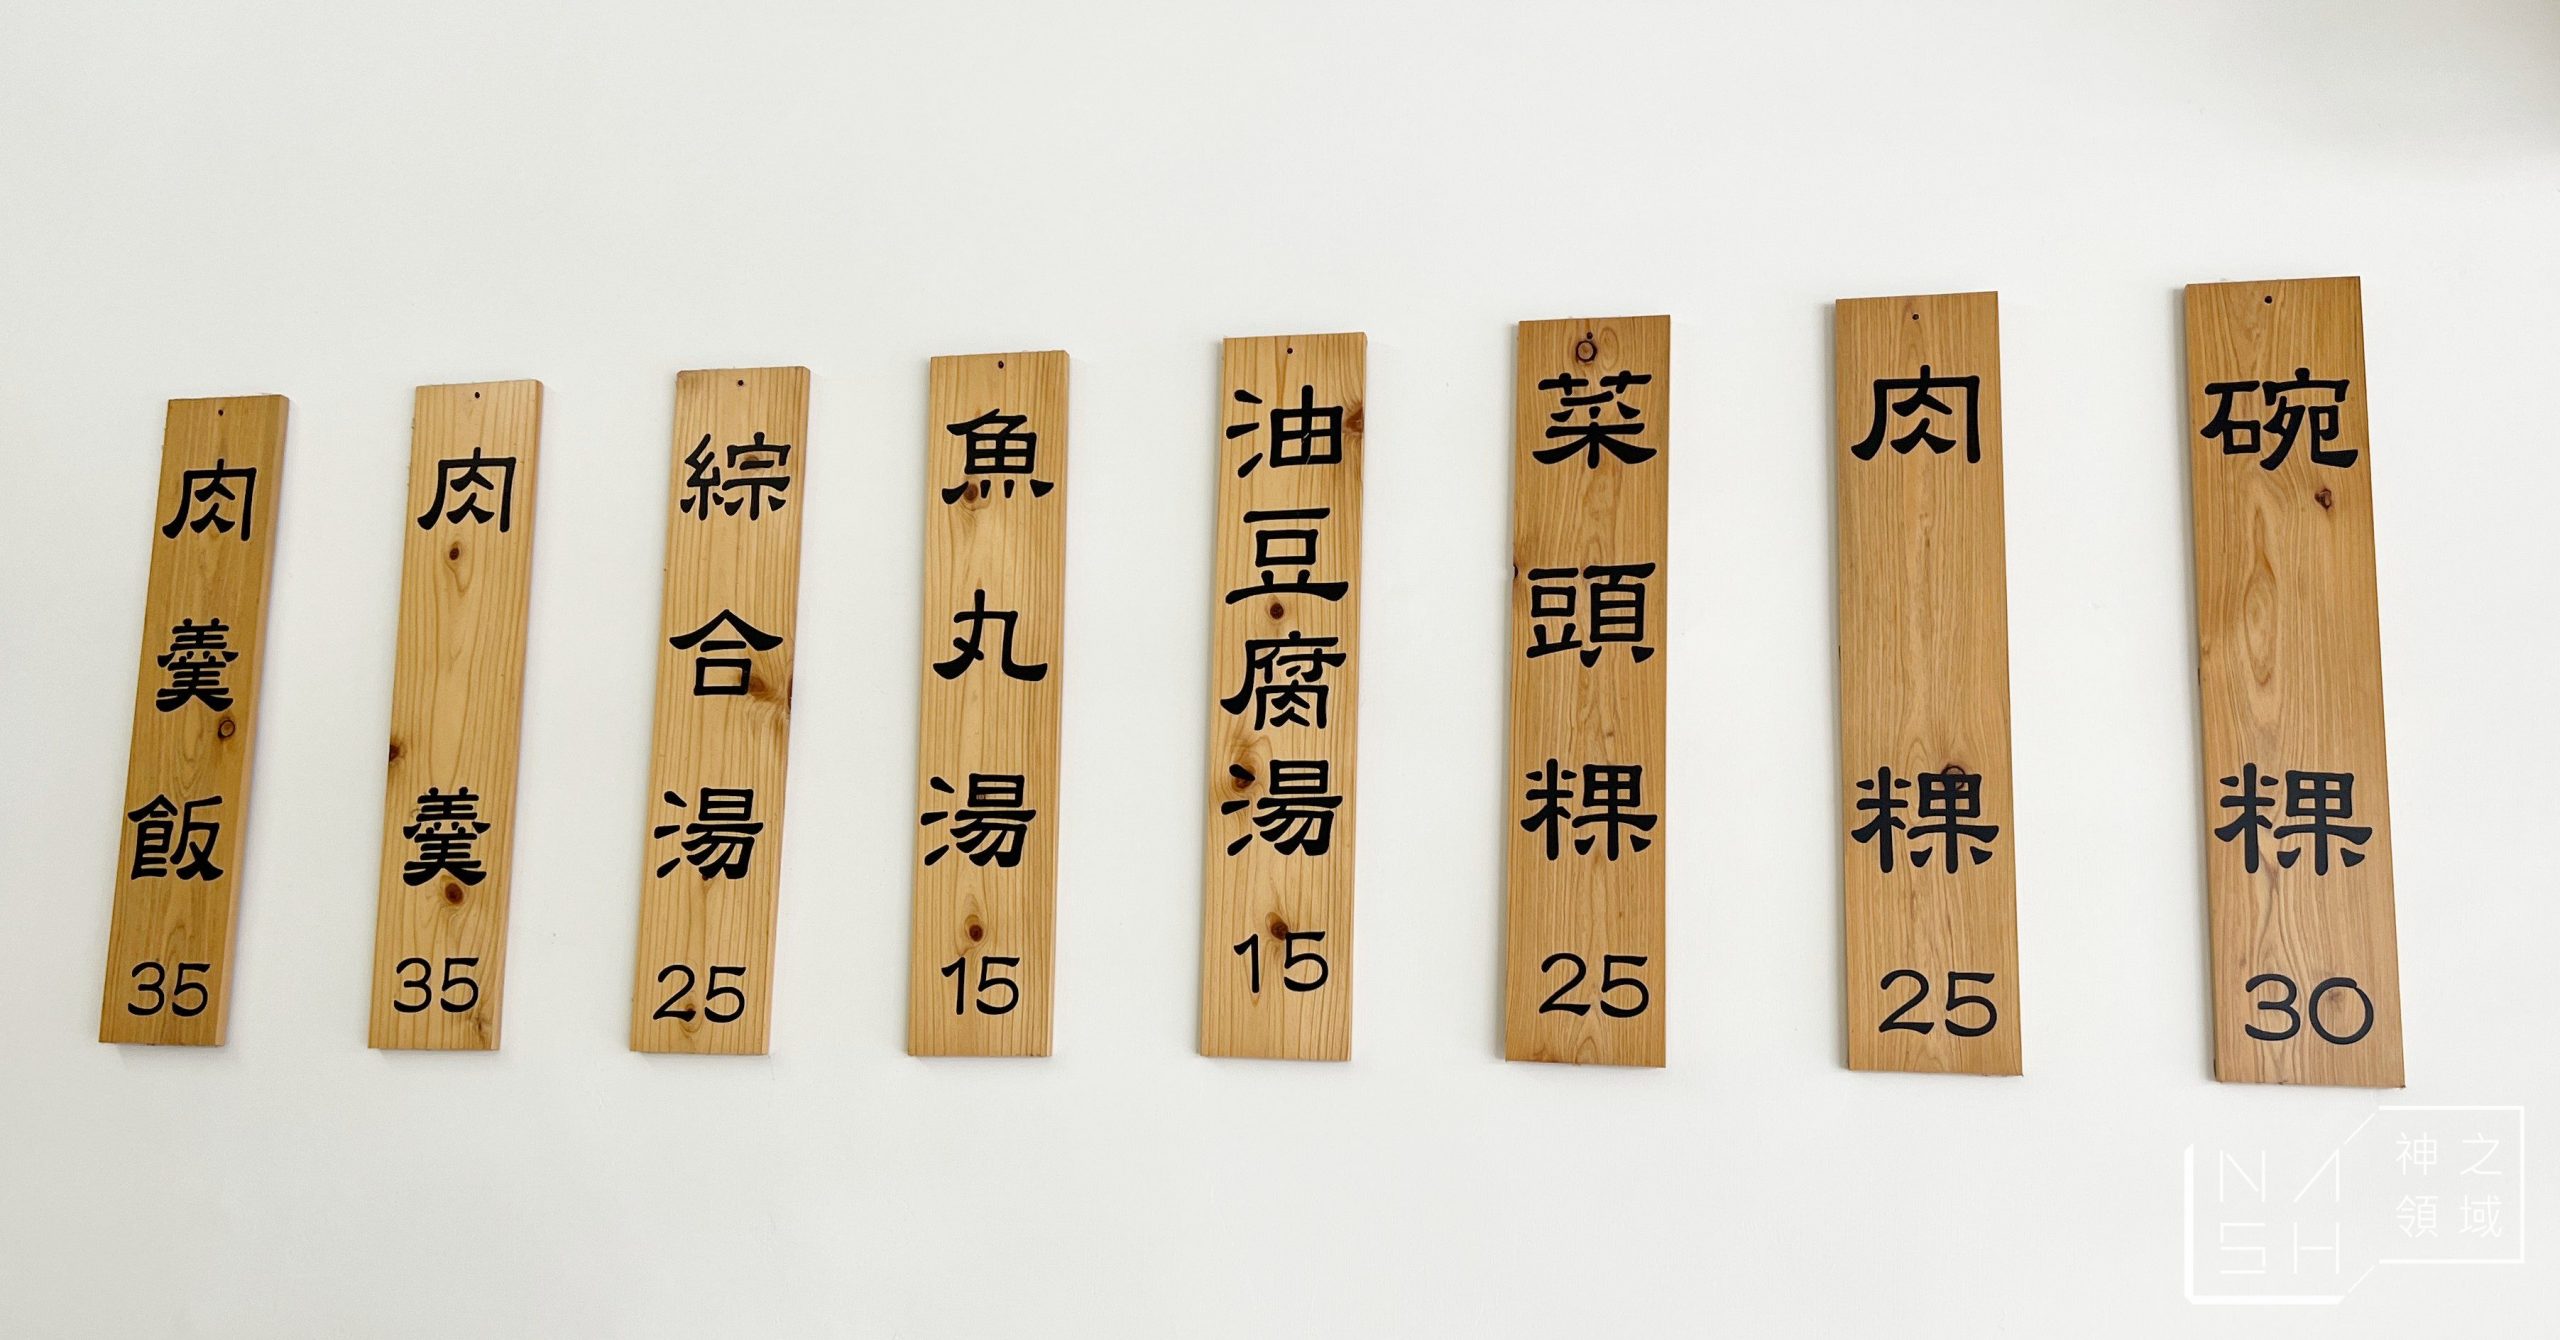 碗粿 30
肉粿 25
菜頭粿 25
油豆腐湯 15
魚丸湯 15
綜合湯 25
肉羹 35
肉羹飯 35
NASH
神之領域